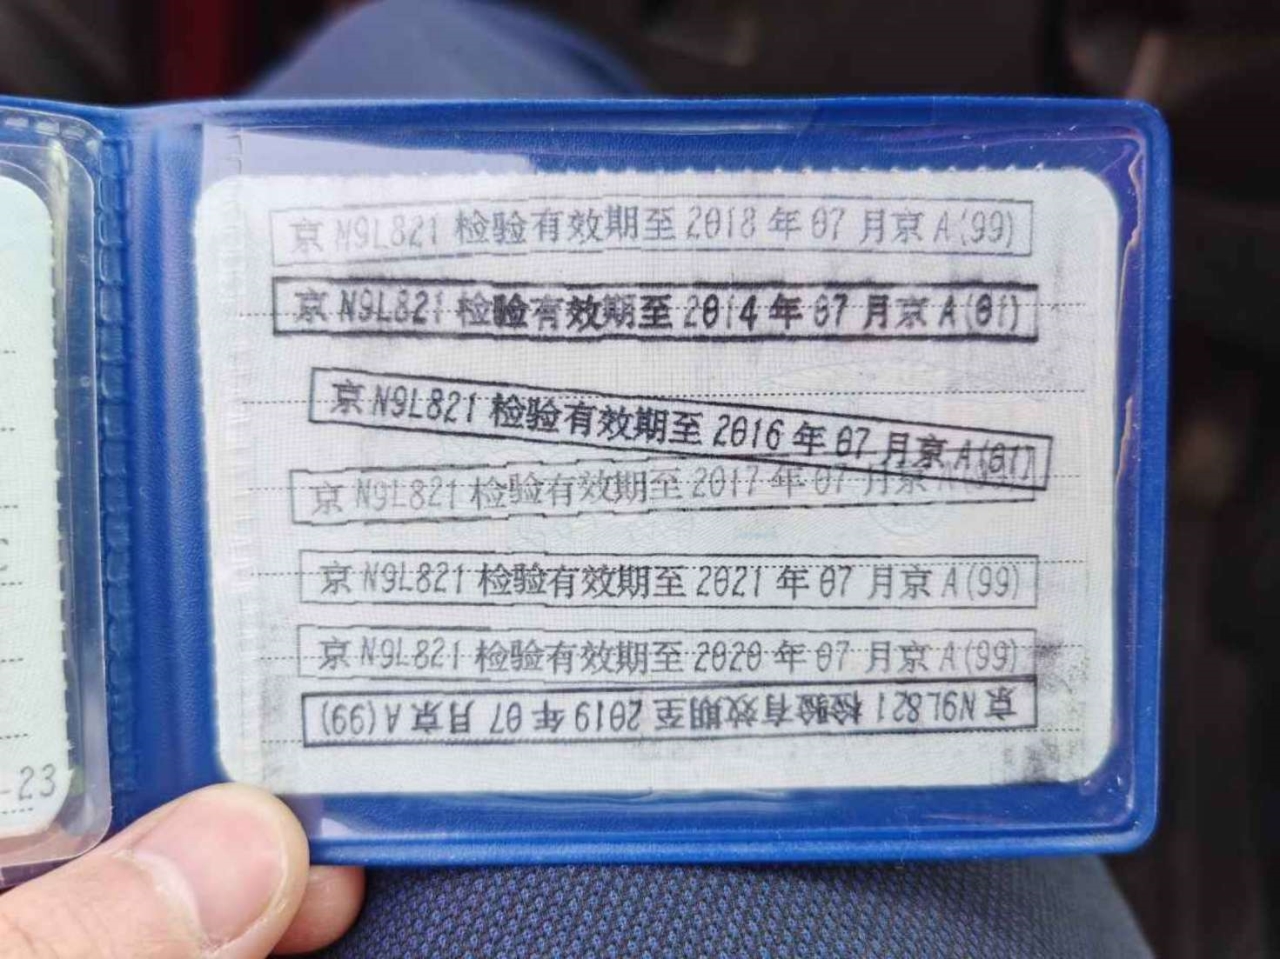 京N9L821 检验有效期至2018年07月京A(99)
京N9L821 检验有效期至2014年07月京A(01)
京N9L821 检验有效期至2016年07月京A(01)
京N9L821 检验有效期至2017年07月京
京N9L821 检验有效期至2021年07月京A(99)
京N9L821 检验有效期至2020年07月京A(99)
京N9L821 检验有效期至2019年07月京A(99)
-23